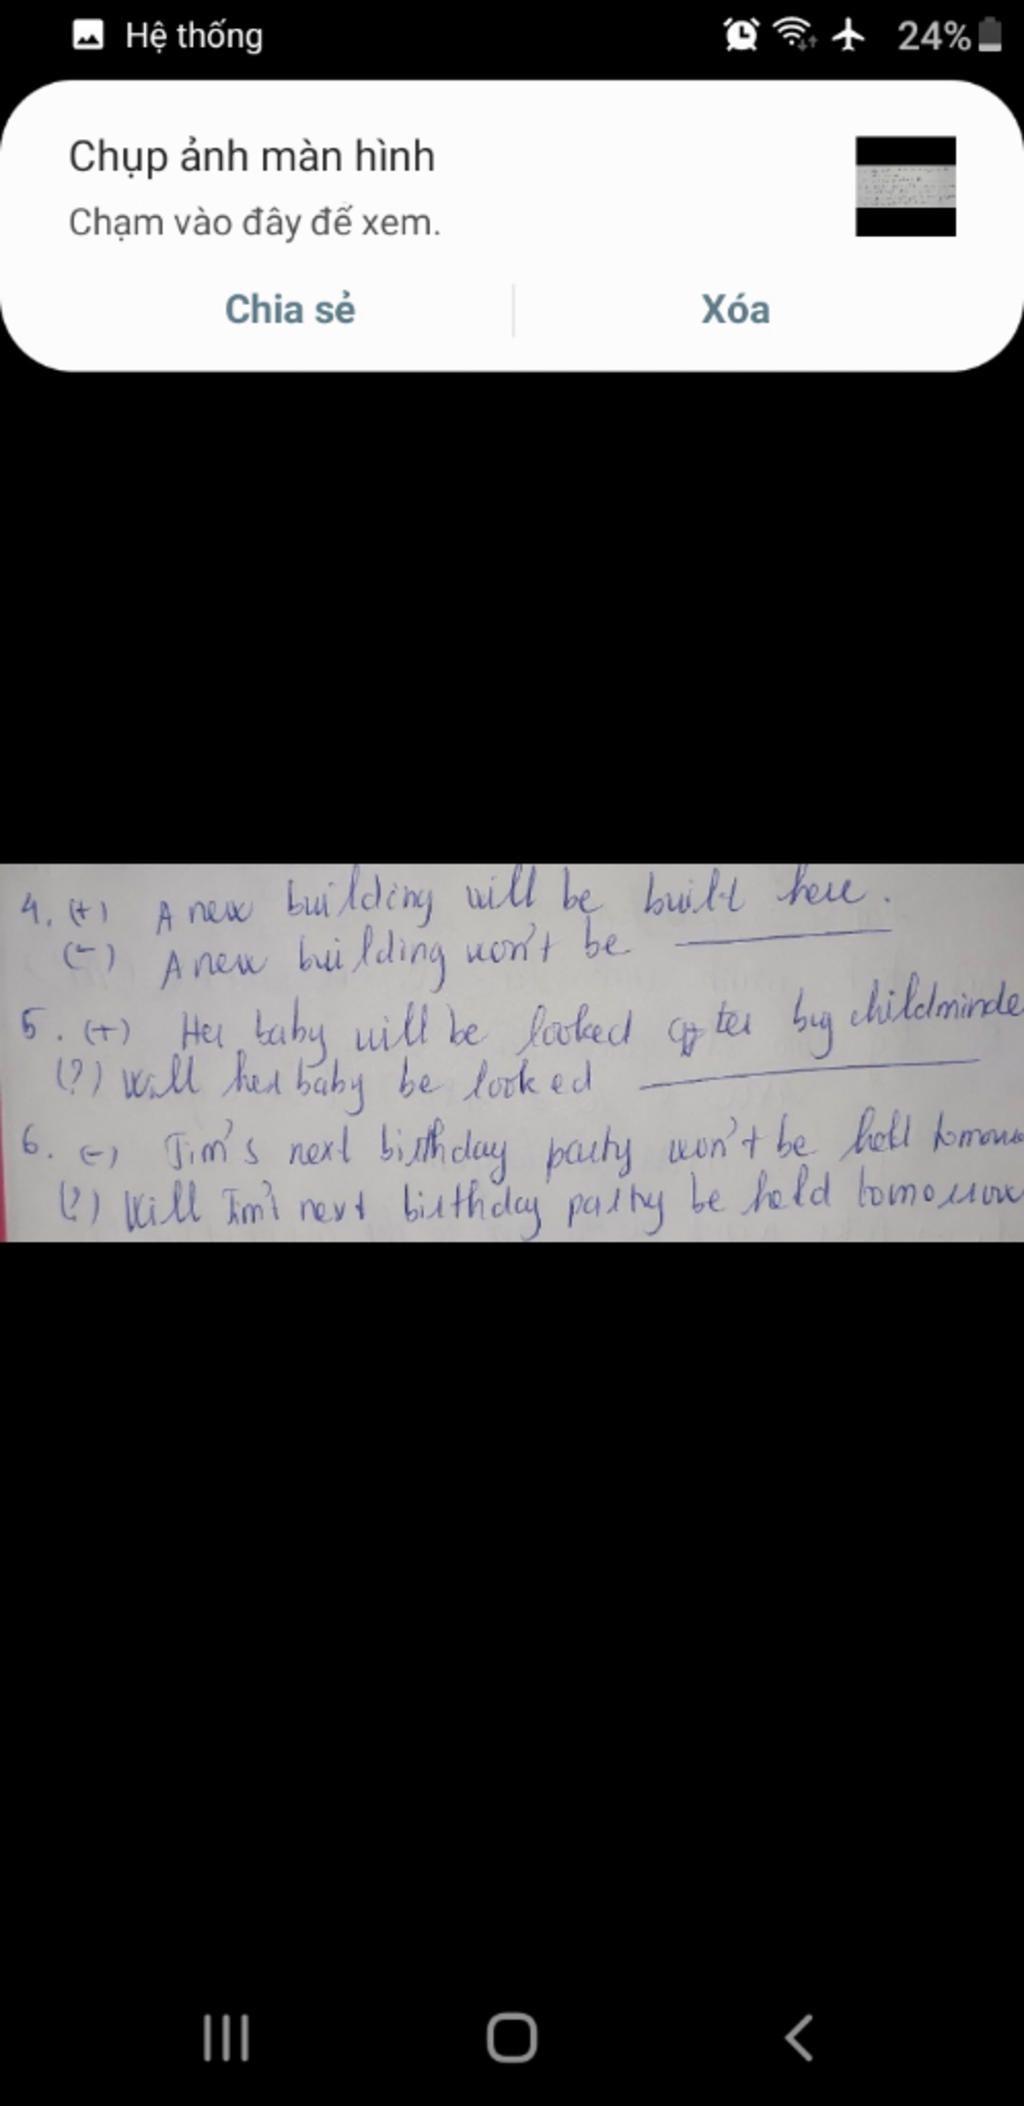 Hệ thống
24%
Chụp ảnh màn hình
Chạm vào đây để xem.
Chia sẻ
Xóa
4. (+) A new building will be built here.
(-) A new building won't be
5. (+) Her baby will be looked after by childminde
(?) Will her baby be looked
6. (-) Jim's next birthday party won't be held tomorrow
(?) Will Jim's next birthday party be held tomorrow